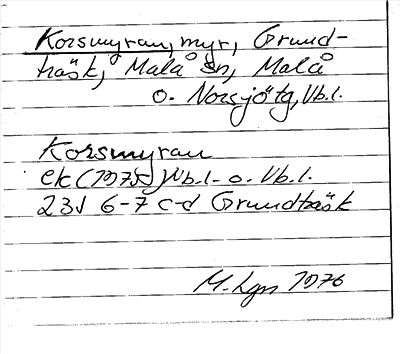 Korsmyran, myr, Grund-
träsk, Malå sn, Malå
o. Norsjö tg, Vb.l.
Korsmyran
ek (1975) Nb.l. o. Vb.l.
23J 6-7 c-d Grundträsk
M. Lgn 1976